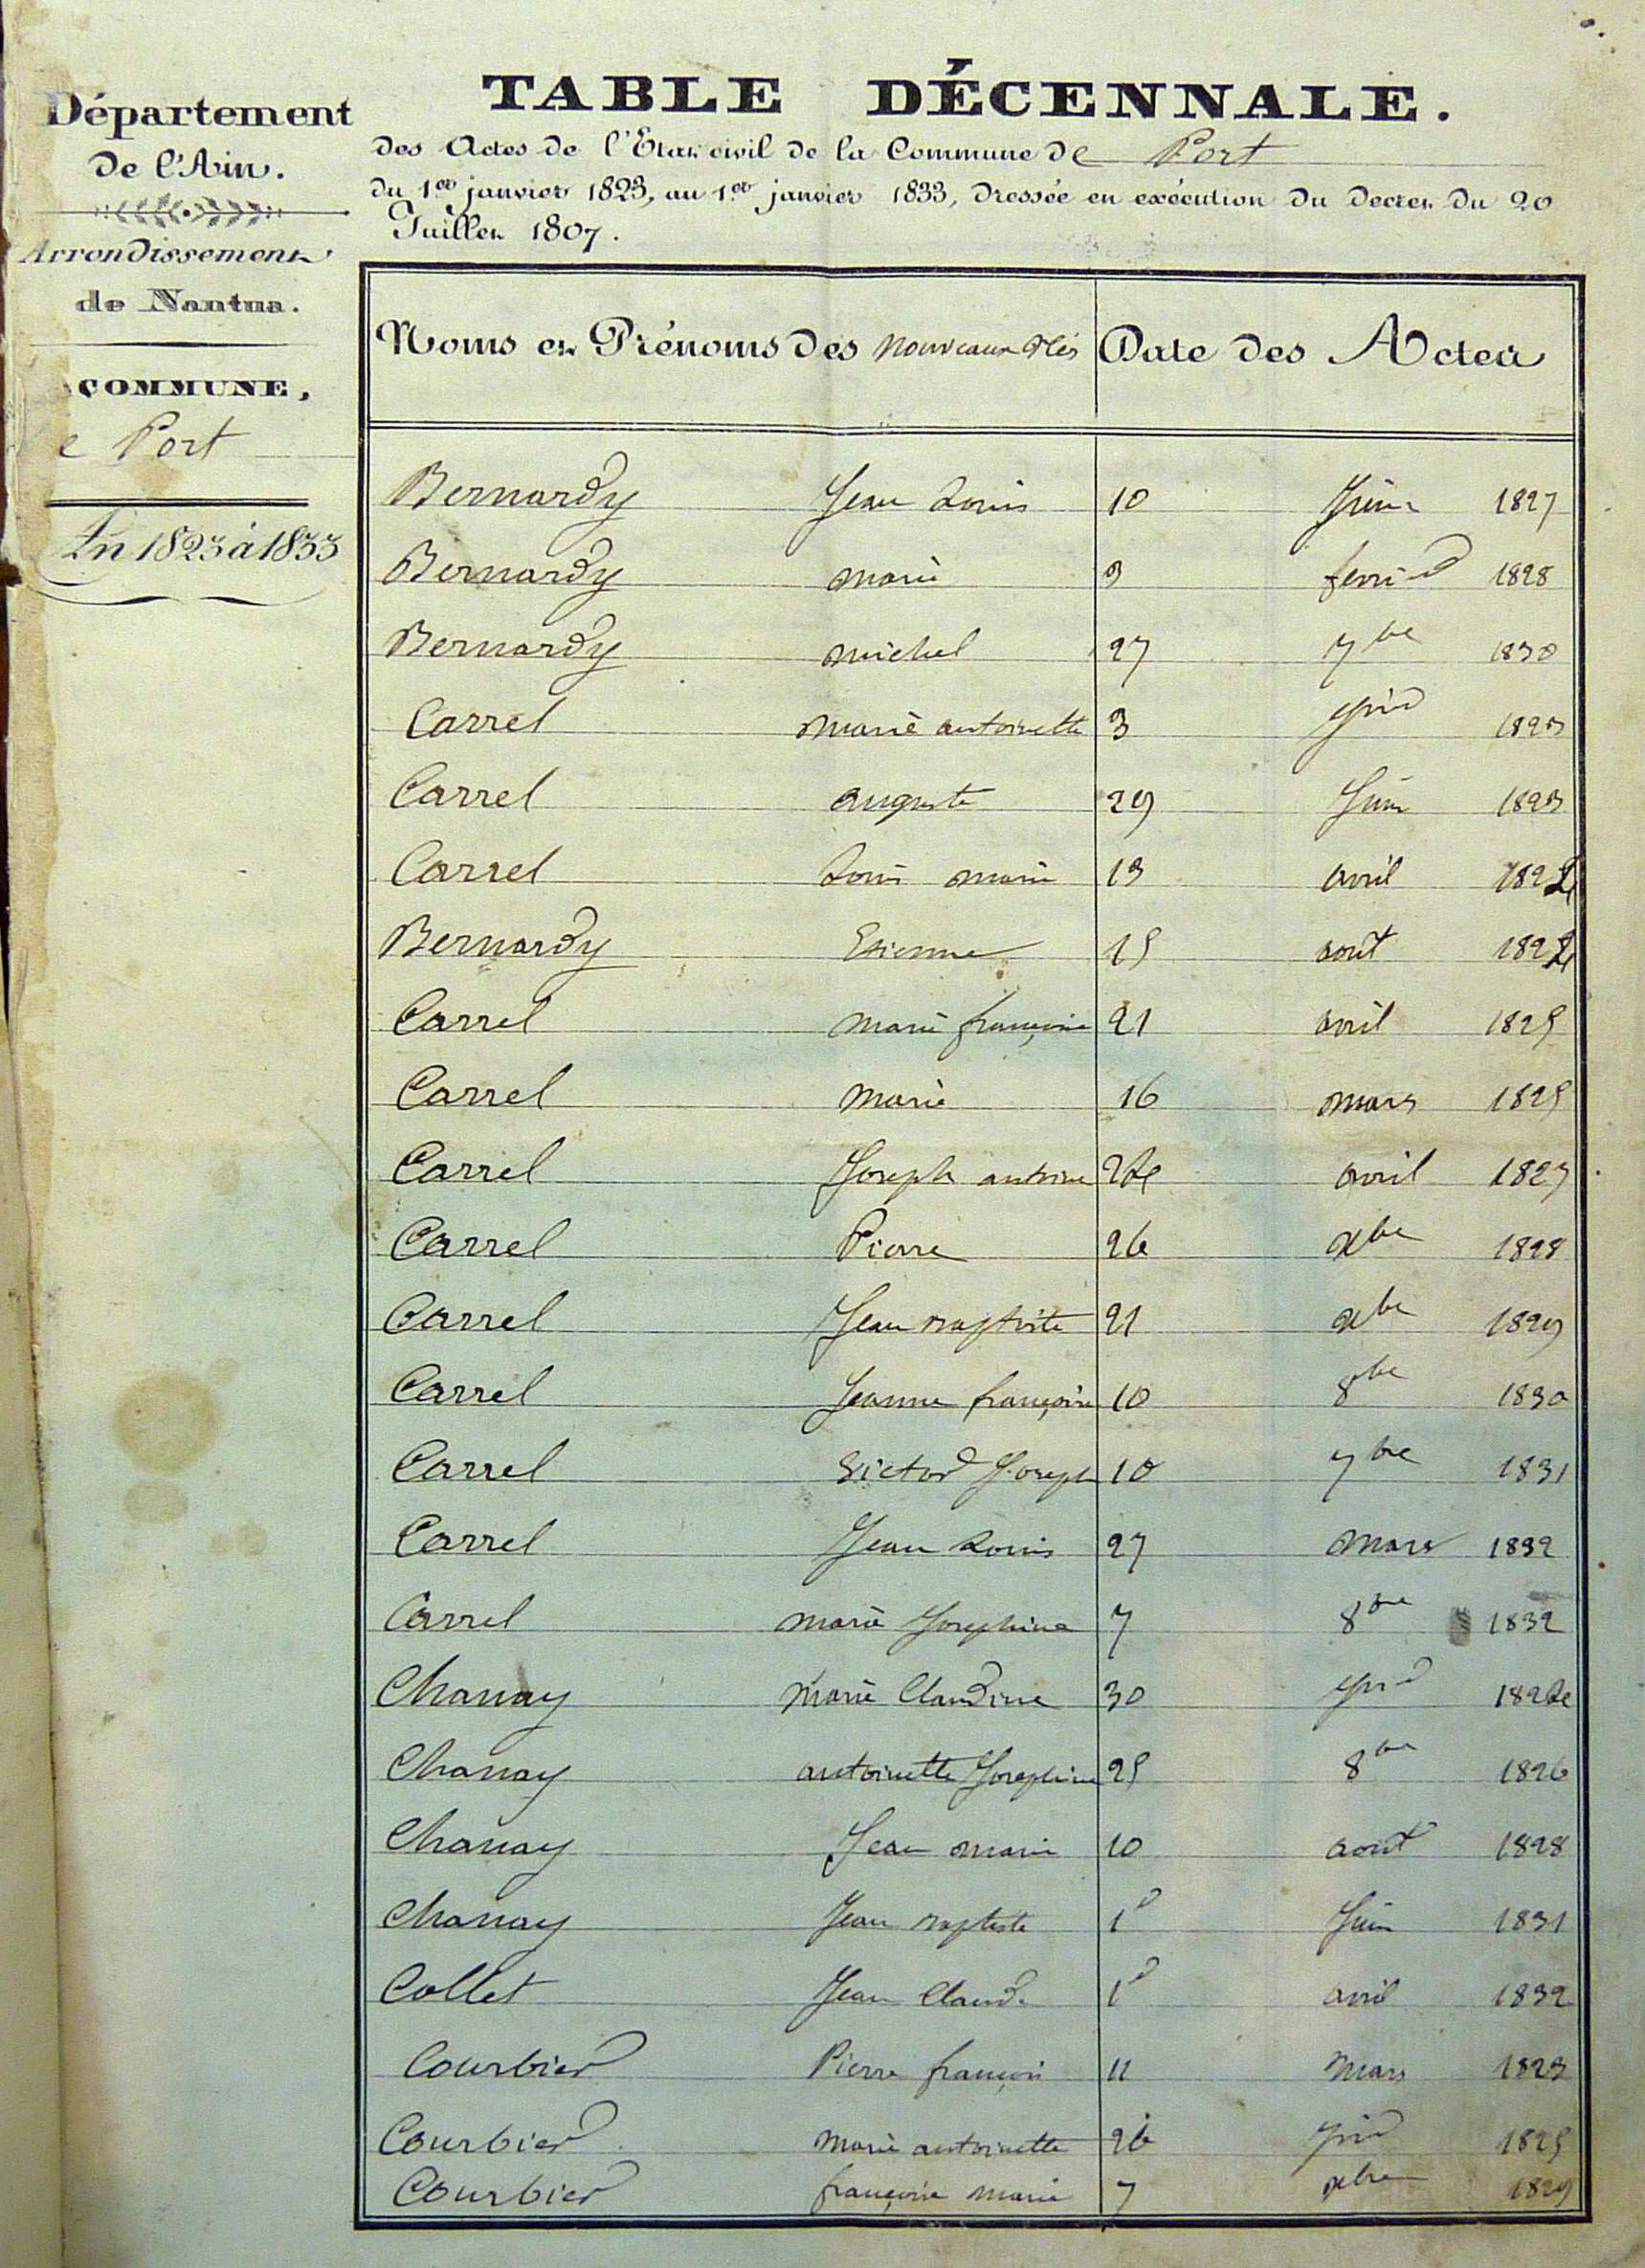 Département
de l'Ain.
Arrondissement
de Nantua.
COMMUNE,
e Port
An 1823 à 1833
TABLE DÉCENNALE.
des Actes de l'Etat civil de la Commune de Port
du 1er janvier 1823, au 1er janvier 1833, dressée en exécution du Décret du 20
Juillet 1807.
Noms et Prénoms des nouveaux Nés Date des Actes
Bernardy Jean Louis 10 Juin 1827
Bernardy marie 9 fevrier 1828
Bernardy michel 27 7bre 1830
Carrel marie antoinette 3 1823
Carrel auguste 29 Juin 1823
Carrel Louis marie 13 avril 1824
Bernardy Etienne 15 aout 1824
Carrel marie françoise 21 avril 1825
Carrel marie 16 mars 1825
Carrel Joseph antoine 24 avril 1827
Carrel Pierre 26 xbre 1828
Carrel Jean Baptiste 21 xbre 1829
Carrel Jeanne françoise 10 8bre 1830
Carrel Victor Joseph 10 7bre 1831
Carrel Jean Louis 27 mars 1832
Carrel marie Josephine 7 8bre 1832
Chanay marie Claudine 30 1824
Chanay antoinette Josephine 25 8bre 1826
Chanay Jean marie 10 aout 1828
Chanay Jean Baptiste 1er Juin 1831
Collet Jean Claude 1er avril 1832
Courbier Pierre françois 11 mars 1823
Courbier marie antoinette 26 1825
Courbier françoise marie 7 xbre 1829